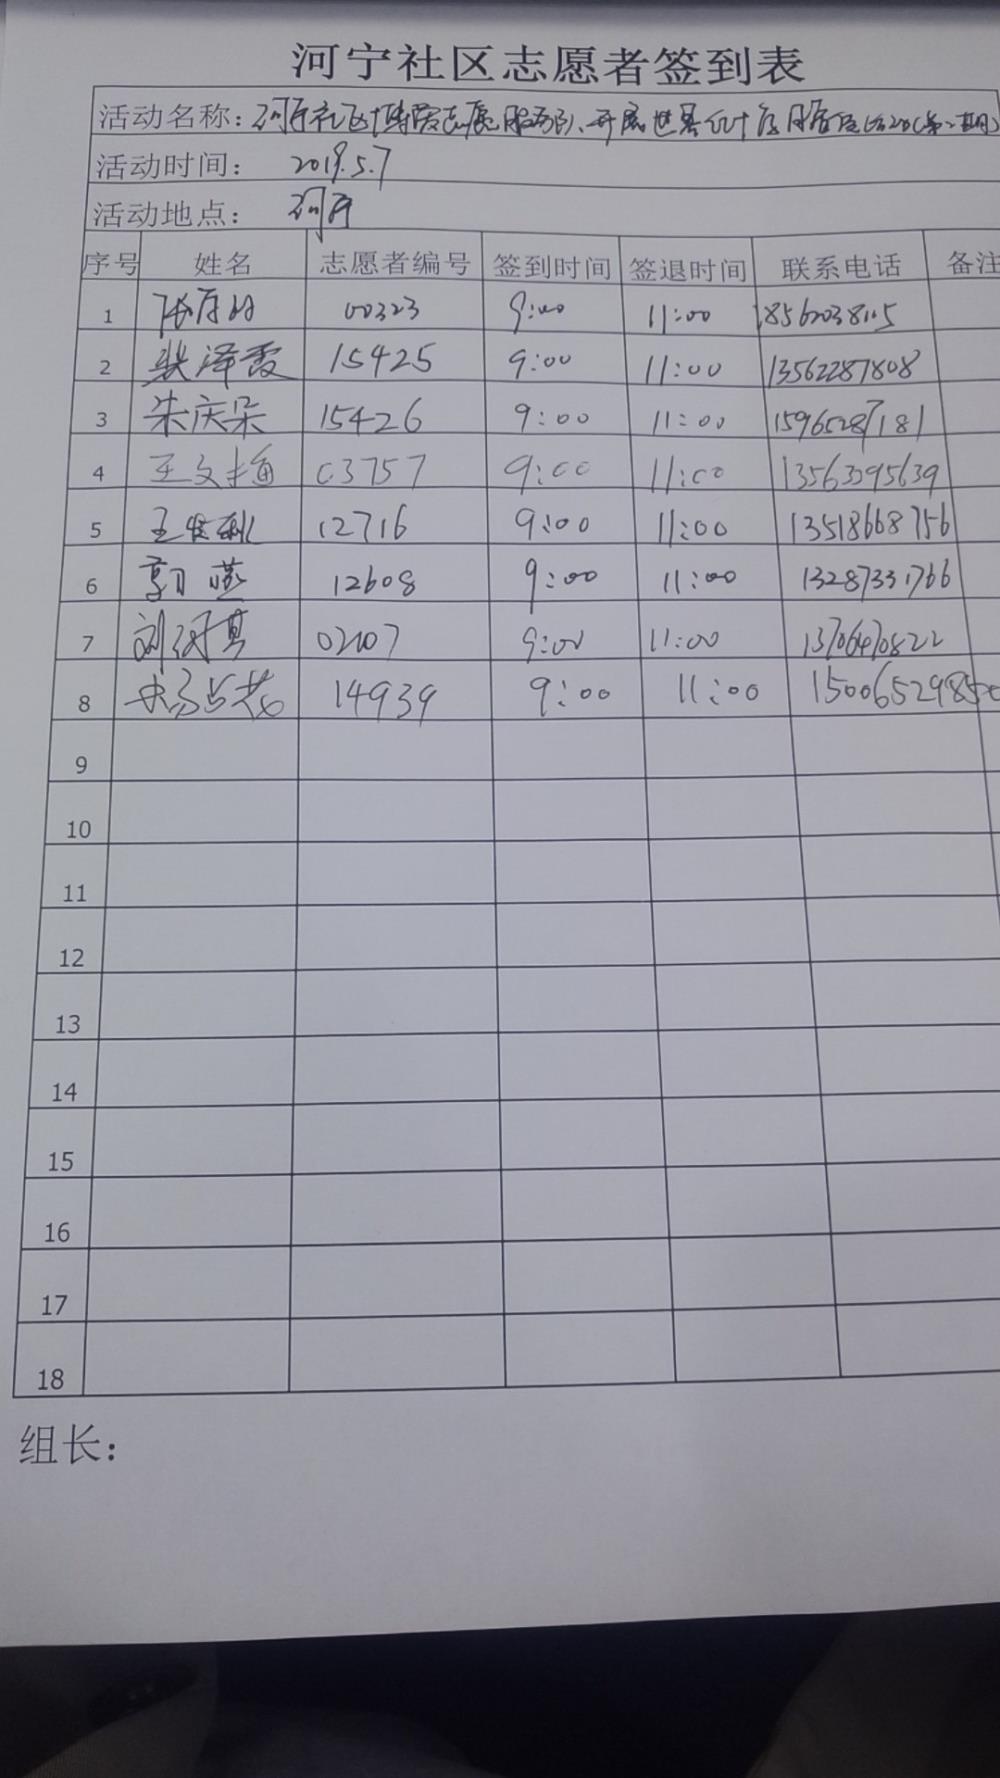 河宁社区志愿者签到表
活动名称：河宁社区博爱志愿服务队、开展世界
活动时间： 2019.5.7
活动地点： 河宁
序号 姓名 志愿者编号 签到时间 签退时间 联系电话 备注
1 00323 9:00 11:00 18562038115
2 裴泽霞 15425 9:00 11:00 13562287808
3 朱庆朵 15426 9:00 11:00 15965287181
4 王文梅 03757 9:00 11:00 13563395639
5 王 12716 9:00 11:00 13518668756
6 郭燕 12608 9:00 11:00 13287331766
7 刘 02107 9:00 11:00 13706470822
8 14939 9:00 11:00 1500652985
9
10
11
12
13
14
15
16
17
18
组长：